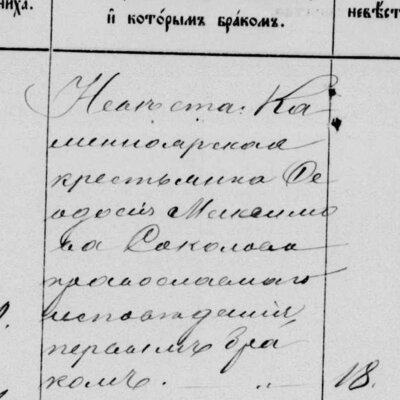 ниха.
и которымъ бракомъ.
невѣст
Невѣста: Ка
менноярская
крестьянка Ѳе
одосія Максимо
ва Соколова
православнаго
исповѣданія
первымъ бра
комъ.
18.